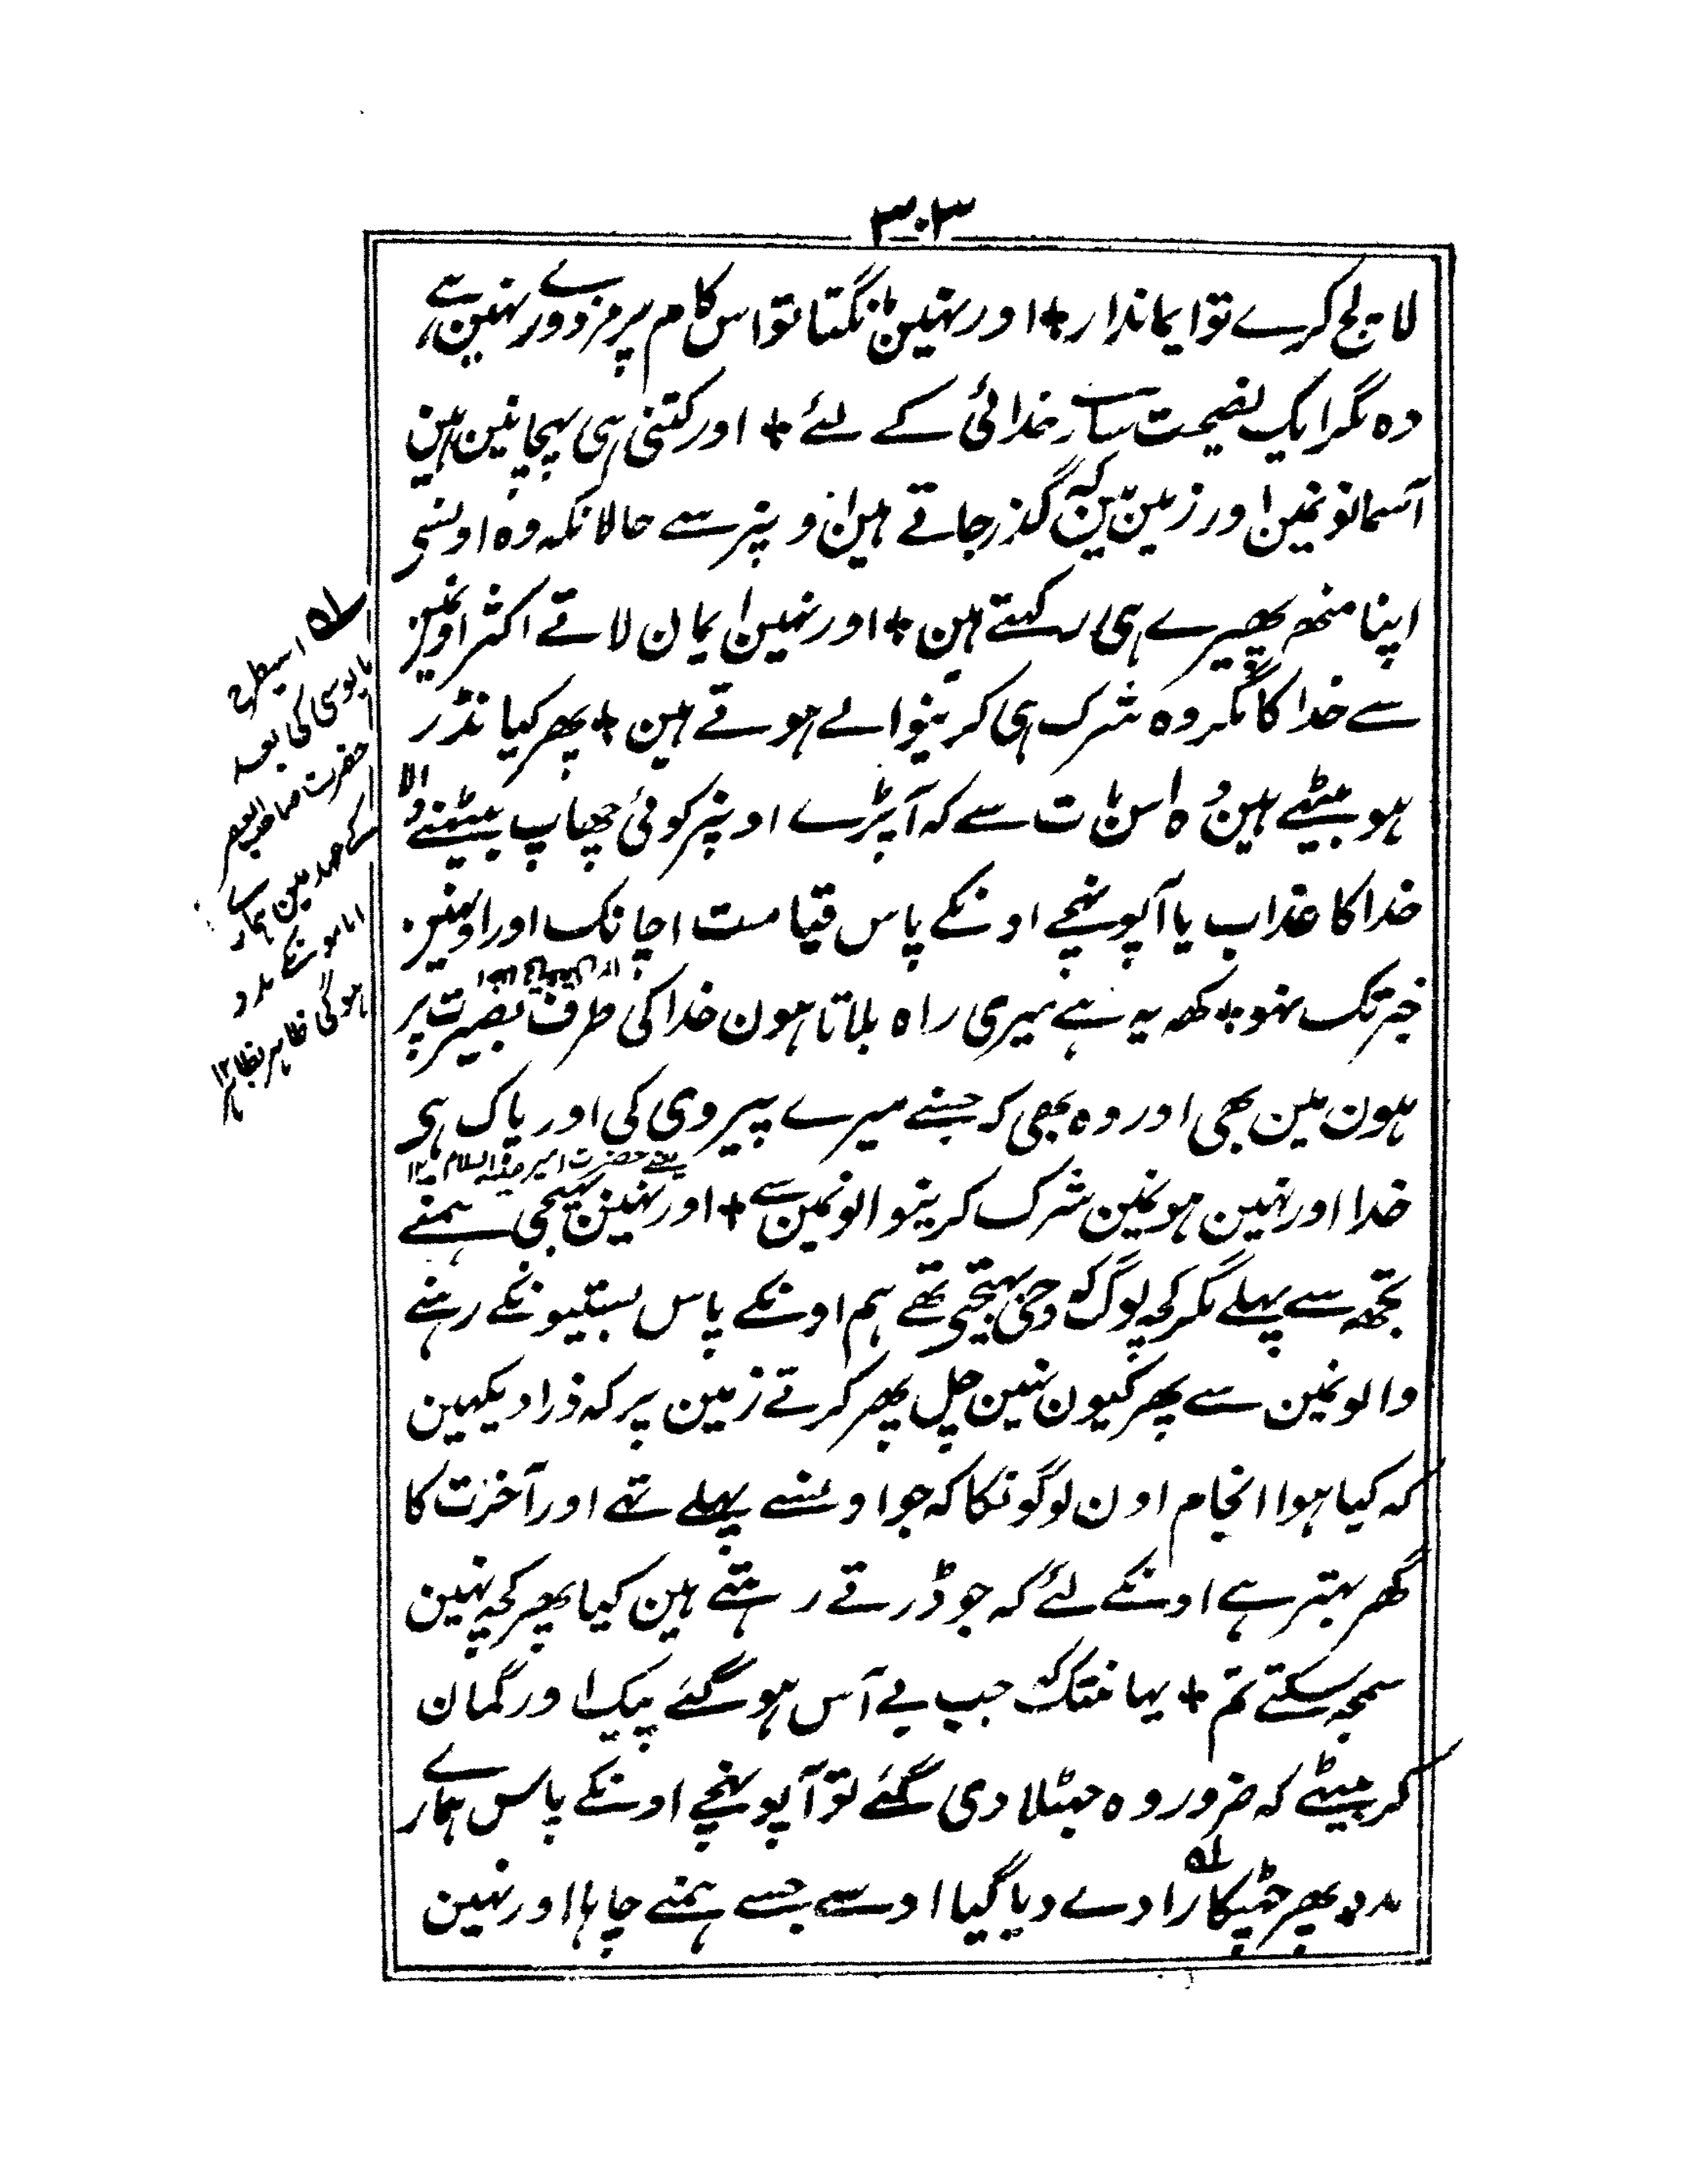 ۳۰۳
لالچ کرے تو ایماندار + اور نہین مانگتا تو اس کام پر مزدورے نہین ہے
وہ مگر ایک نصیحت سارے خدائی کے لئے + اور کتنی ہی پہچانین ہین
آسمانونمین اور زمین مین کہ گذر جاتے ہین اونپر سے حالانکہ وہ اونسی
اپنا منھ پھیرے ہی رکہتے ہین + اور نہین ایمان لاتے اکثر اونمین
سے خدا کا مگر وہ شرک ہی کرینوالے ہوتے ہین + پھر کیا نڈر
ہو بیٹھے ہین وہ اس بات سے کہ آپڑے اونپر کوئی چھاپ بیٹھنے والا
خدا کا عذاب یا آپونہچے اونکے پاس قیامت اچانک اور اونہین
خبر تک نہو + کھہ یہ ہے میری راہ بلاتا ہون خدا کی طرف بصیرت پر
ہون مین بھی اور وہ بھی کہ جسنے میرے پیروی کی اور پاک ہی
یعنے حضرت امیر علیہ السلام ۱۲
خدا اور نہین ہونمین شرک کرینوالونمین سے + اور نہین بھیجی ہمنے
تجھہ سے پہلے مگر کچہ لوگ کہ وحی بہیجتی تھے ہم اونکے پاس بستیونکے رہنے
والونمین سے پھر کیون نہین چل پھر کرتے زمین پر کہ ذرا دیکہین
کہ کیا ہوا انجام اون لوگونکا کہ جو اونسے پہلے تھے اور آخرت کا
گھر بہتر ہے اونکے لئے کہ جو ڈرتے رہتے ہین کیا پھر کچہ نہین
سمجہ سکتے تم + یہانتک کہ جب بے آس ہو گئے پیک اور گمان
کر بیٹھے کہ ضرور وہ جہٹلا دی گئے تو آپونہچے اونکے پاس ہمارے
مدد پھر چھٹکارا دے دیا گیا اوسے جسے ہمنے چاہا اور نہین
ے۱ اسیطرح
مایوسی کی بعد
حضرت صاحب العصر
کے عہد مین ہمارے
امامونکے مدد
ہوگی ظاہر بظاہر ۱۲